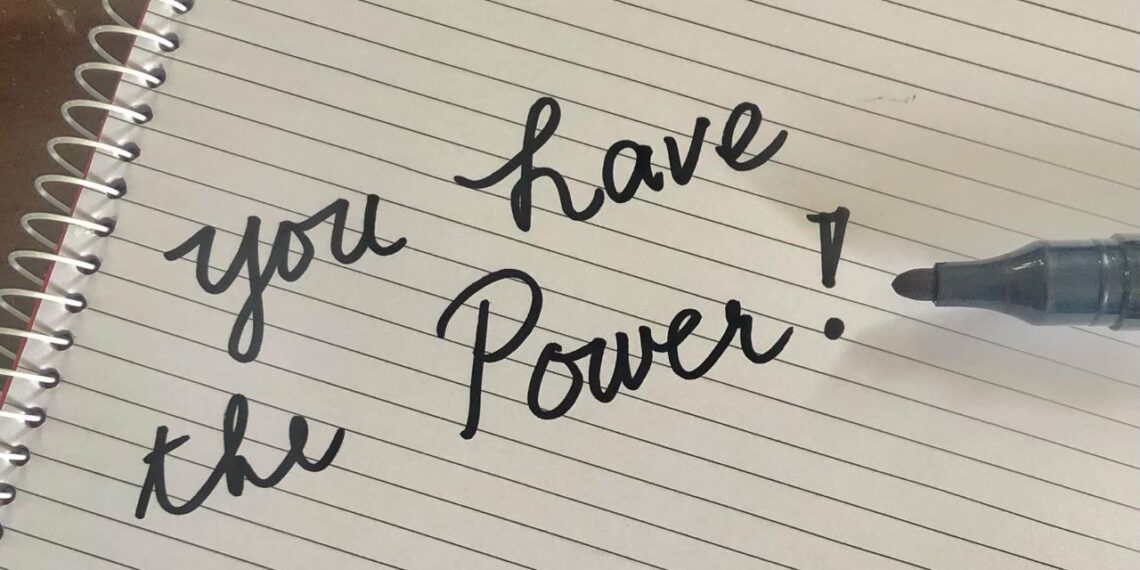 you have
the Power!